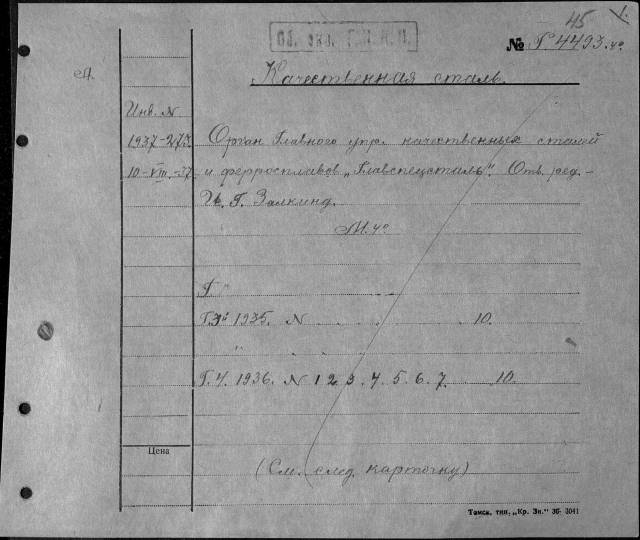 45 1.
Об. экз. Г.П.Н.П.
№ Г 4493.4º
ед.
Качественная сталь.
Инв. N
1937-273
10-VIII-37
Орган Главного упр. качественных сталей
и ферросплавов „Главспецсталь". Отв. ред.-
И. Г. Залкинд.
М. 4º
Г. "
Г.3й 1935. N . . . . 10.
" . . .
Г.4. 1936. N 1 2 3. 4. 5. 6. 7. . . 10.
Цена
(См. след. карточку)
Томск. тип. „Кр. Зн." 36- 3041